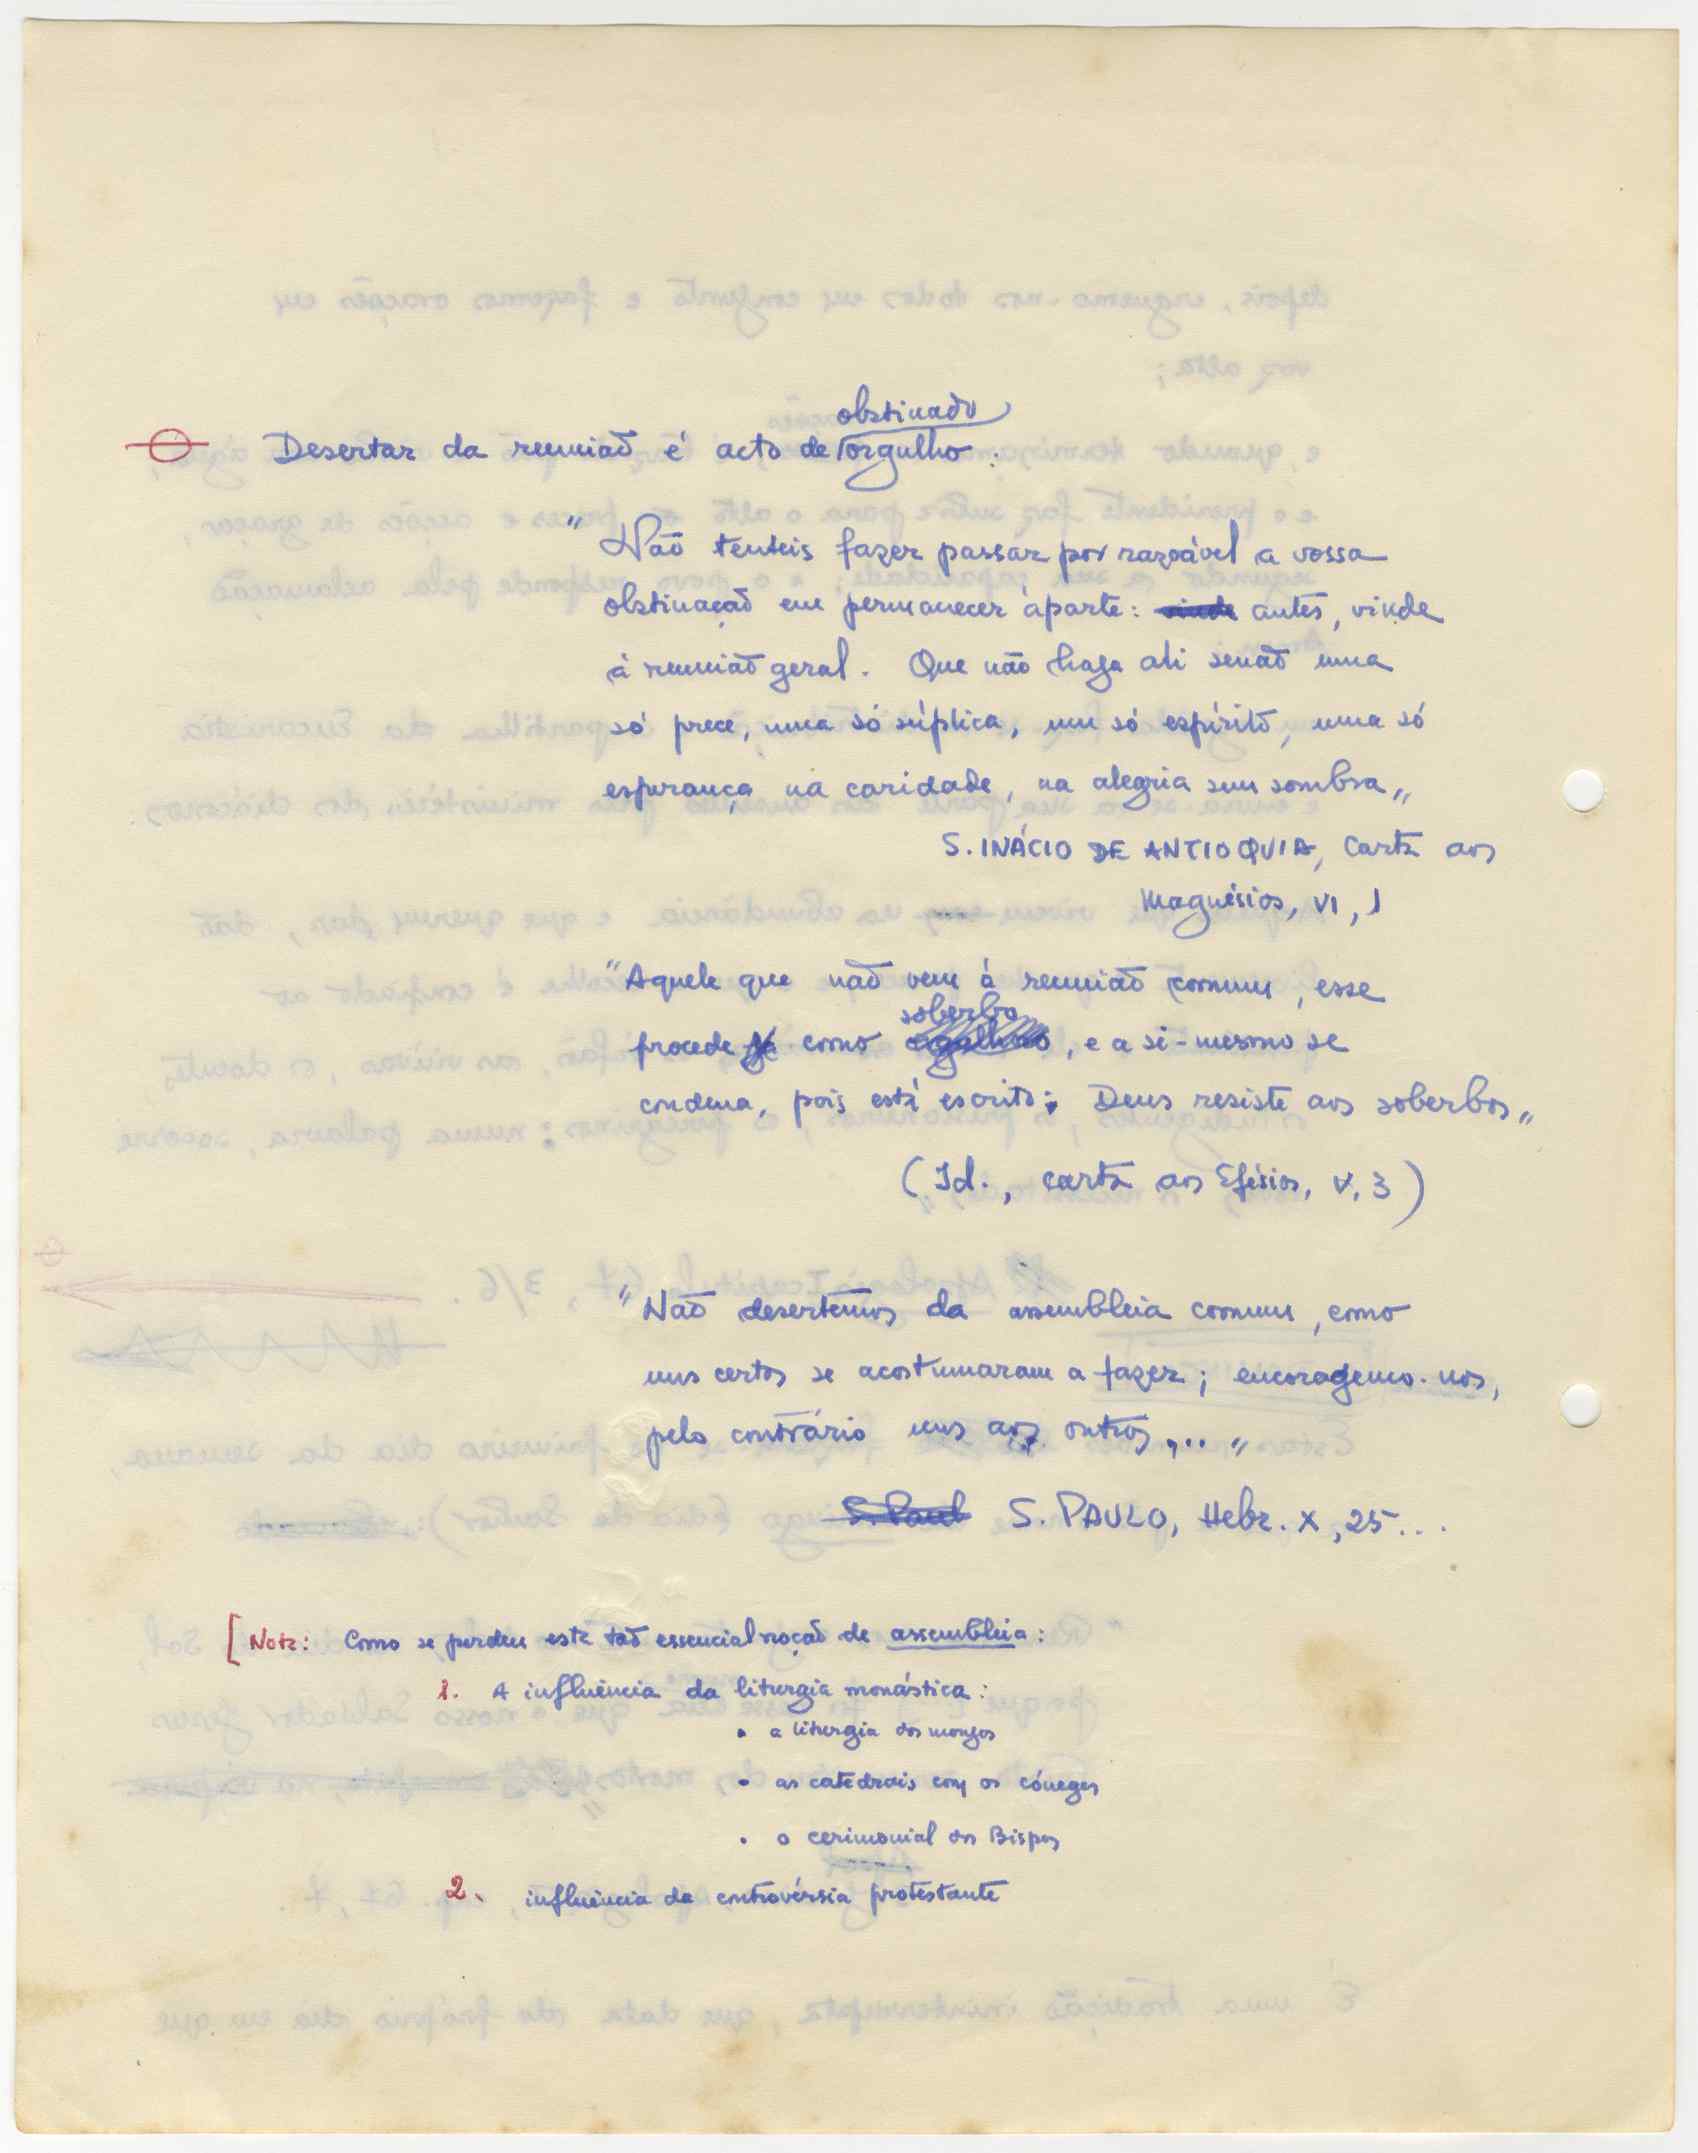 obstinado
Desertar da reunião é acto de orgulho:
"Não tenteis fazer passar por razoável a vossa
obstinação em permanecer àparte: vinde antes, vinde
à reunião geral. Que não haja ali senão uma
só prece, uma só súplica, um só espírito, uma só
esperança na caridade, na alegria sem sombra"
S. INÁCIO DE ANTIOQUIA, Carta aos
Magnésios, VI, 1
"Aquele que não vem à reunião comum, esse
soberbo
procede como orgulhoso, e a si-mesmo se
condena, pois está escrito: Deus resiste aos soberbos"
(Id., carta aos Efésios, V, 3)
"Não desertemos da assembleia comum, como
uns certos se acostumaram a fazer; encoragemo-nos,
pelo contrário uns aos outros,..."
S. Paul S. PAULO, Hebr. X, 25...
[Nota: Como se perdeu esta tão essencial noção de assembleia:
1. A influência da liturgia monástica:
• a liturgia dos monges
• as catedrais com os cónegos
• o cerimonial dos Bispos
2. influência da controvérsia protestante